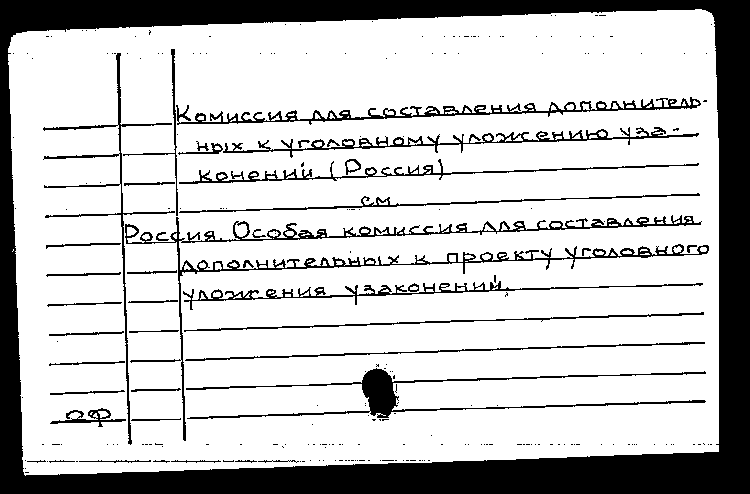 Комиссия для составления дополнитель-
ных к уголовному уложению уза-
конений (Россия)
см.
Россия. Особая комиссия для составления
дополнительных к проекту уголовного
уложения узаконений.
оф